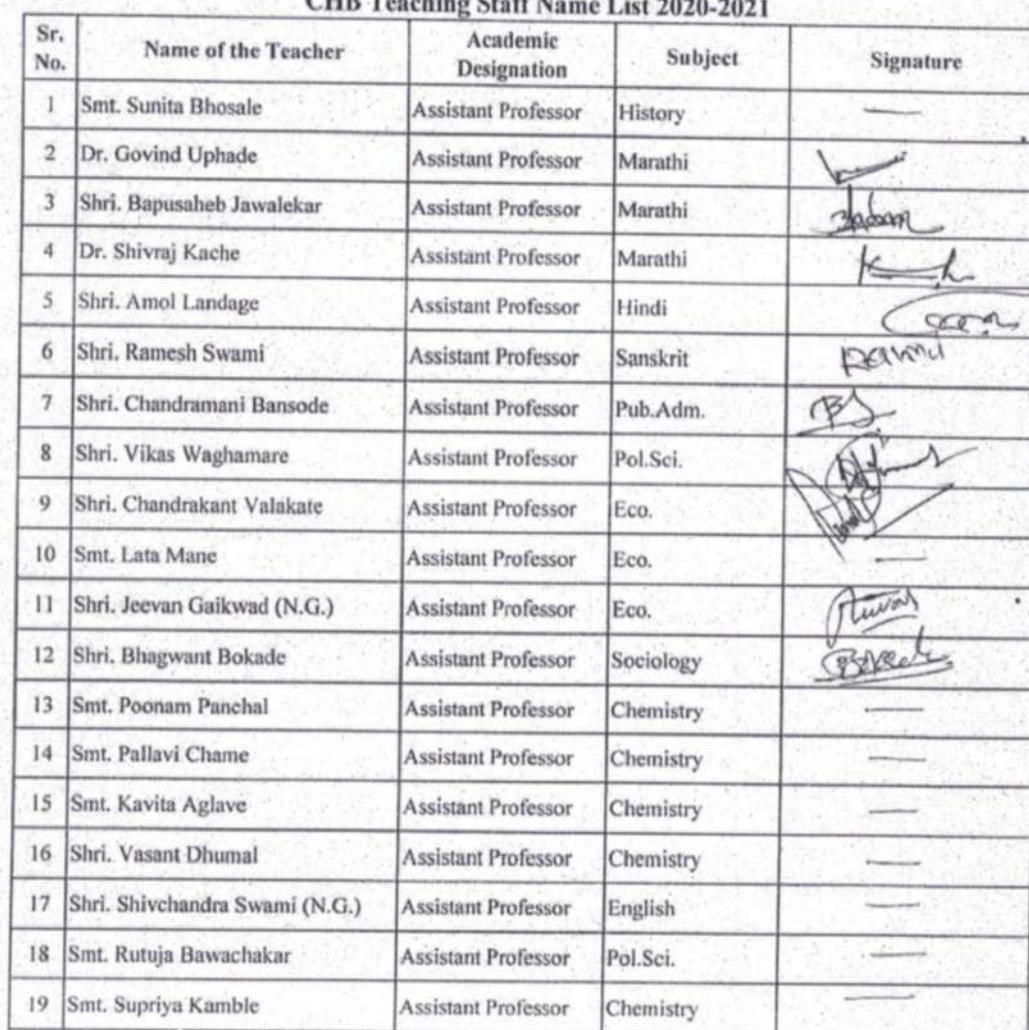 CHB Teaching Staff Name List 2020-2021
Sr. No. Name of the Teacher Academic Designation Subject Signature
1 Smt. Sunita Bhosale Assistant Professor History —
2 Dr. Govind Uphade Assistant Professor Marathi
3 Shri. Bapusaheb Jawalekar Assistant Professor Marathi
4 Dr. Shivraj Kache Assistant Professor Marathi
5 Shri. Amol Landage Assistant Professor Hindi
6 Shri. Ramesh Swami Assistant Professor Sanskrit
7 Shri. Chandramani Bansode Assistant Professor Pub.Adm.
8 Shri. Vikas Waghamare Assistant Professor Pol.Sci.
9 Shri. Chandrakant Valakate Assistant Professor Eco.
10 Smt. Lata Mane Assistant Professor Eco. —
11 Shri. Jeevan Gaikwad (N.G.) Assistant Professor Eco.
12 Shri. Bhagwant Bokade Assistant Professor Sociology
13 Smt. Poonam Panchal Assistant Professor Chemistry —
14 Smt. Pallavi Chame Assistant Professor Chemistry —
15 Smt. Kavita Aglave Assistant Professor Chemistry —
16 Shri. Vasant Dhumal Assistant Professor Chemistry —
17 Shri. Shivchandra Swami (N.G.) Assistant Professor English —
18 Smt. Rutuja Bawachakar Assistant Professor Pol.Sci. —
19 Smt. Supriya Kamble Assistant Professor Chemistry —